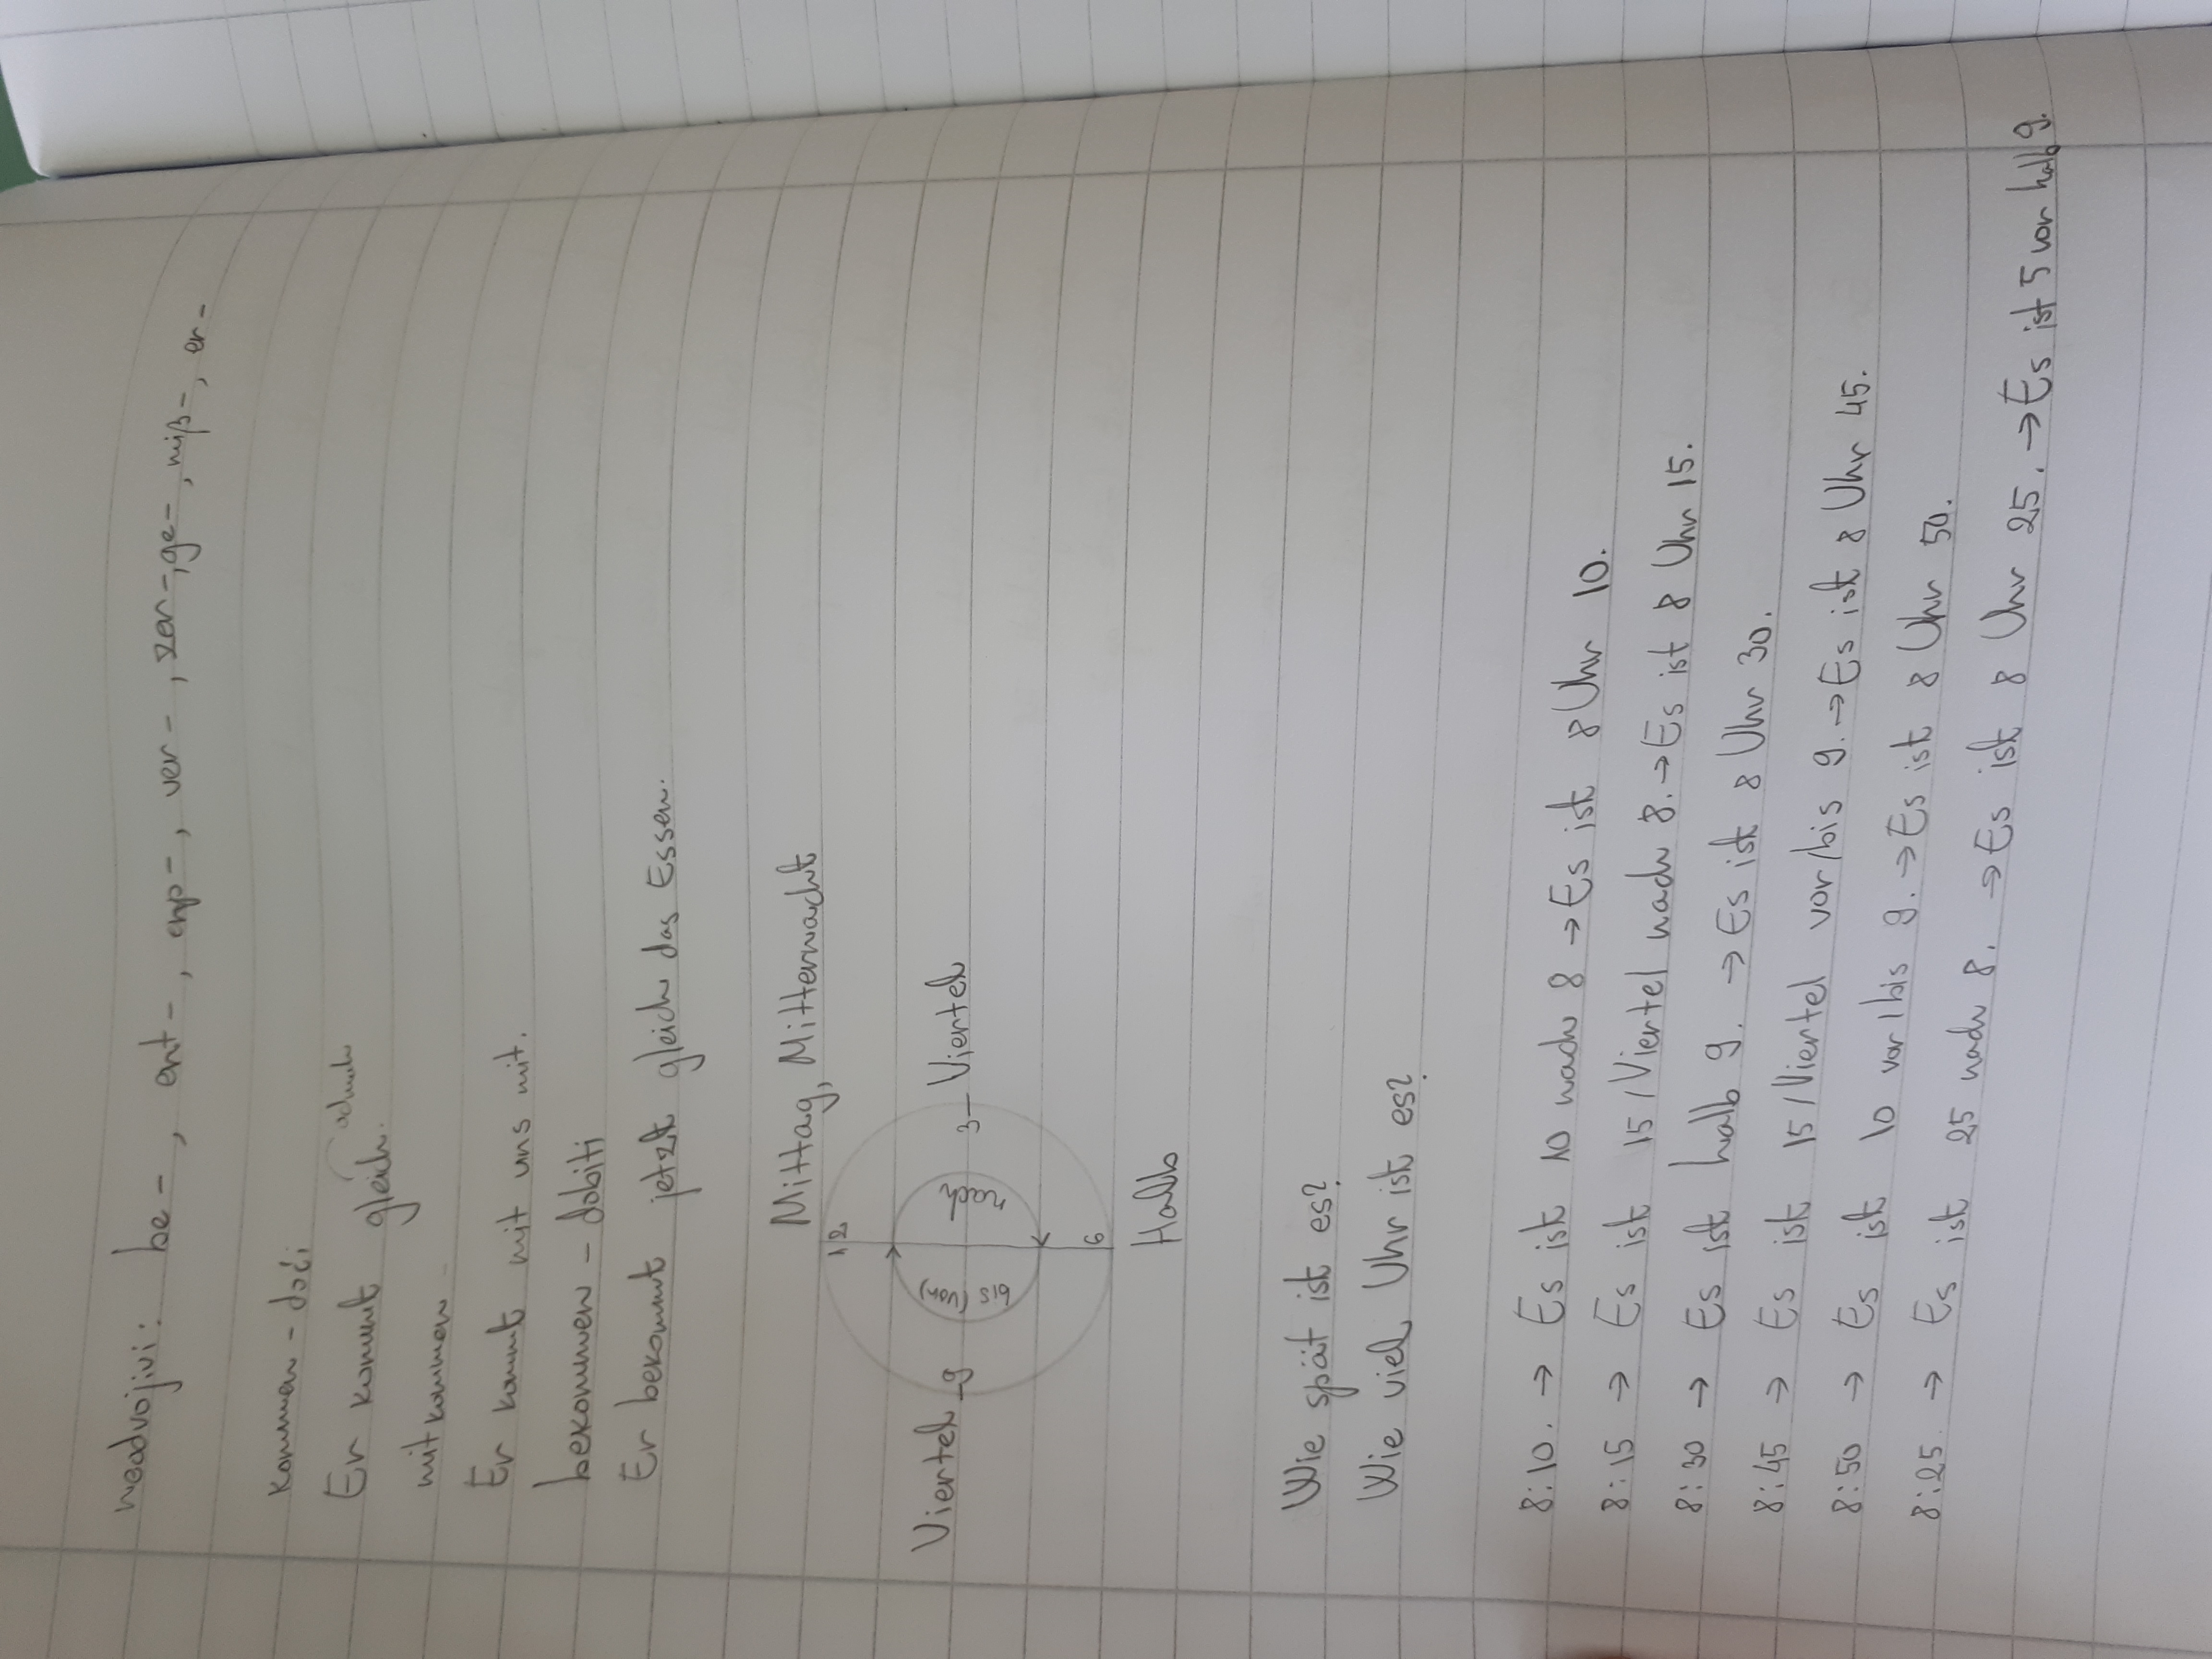 neodvojivi: be-, ent-, enp-, ver-, zer-, ge-, miß-, er-
kommen - doći
Er kommt gleich.
odmah
mitkommen -
Er kommt mit uns mit.
bekommen - dobiti
Er bekommt jetzt gleich das Essen.
Mittag, Mitternacht
12
Viertel - 9
bis (vor)
nach
3 - Viertel
6
Halb
Wie spät ist es?
Wie viel Uhr ist es?
8:10. → Es ist 10 nach 8 → Es ist 8 Uhr 10.
8:15 → Es ist 15 / Viertel nach 8. → Es ist 8 Uhr 15.
8:30 → Es ist halb 9. → Es ist 8 Uhr 30.
8:45 → Es ist 15 / Viertel vor/bis 9. → Es ist 8 Uhr 45.
8:50 → Es ist 10 vor/bis 9. → Es ist 8 Uhr 50.
8:25. → Es ist 25 nach 8. → Es ist 8 Uhr 25. → Es ist 5 vor halb 9.